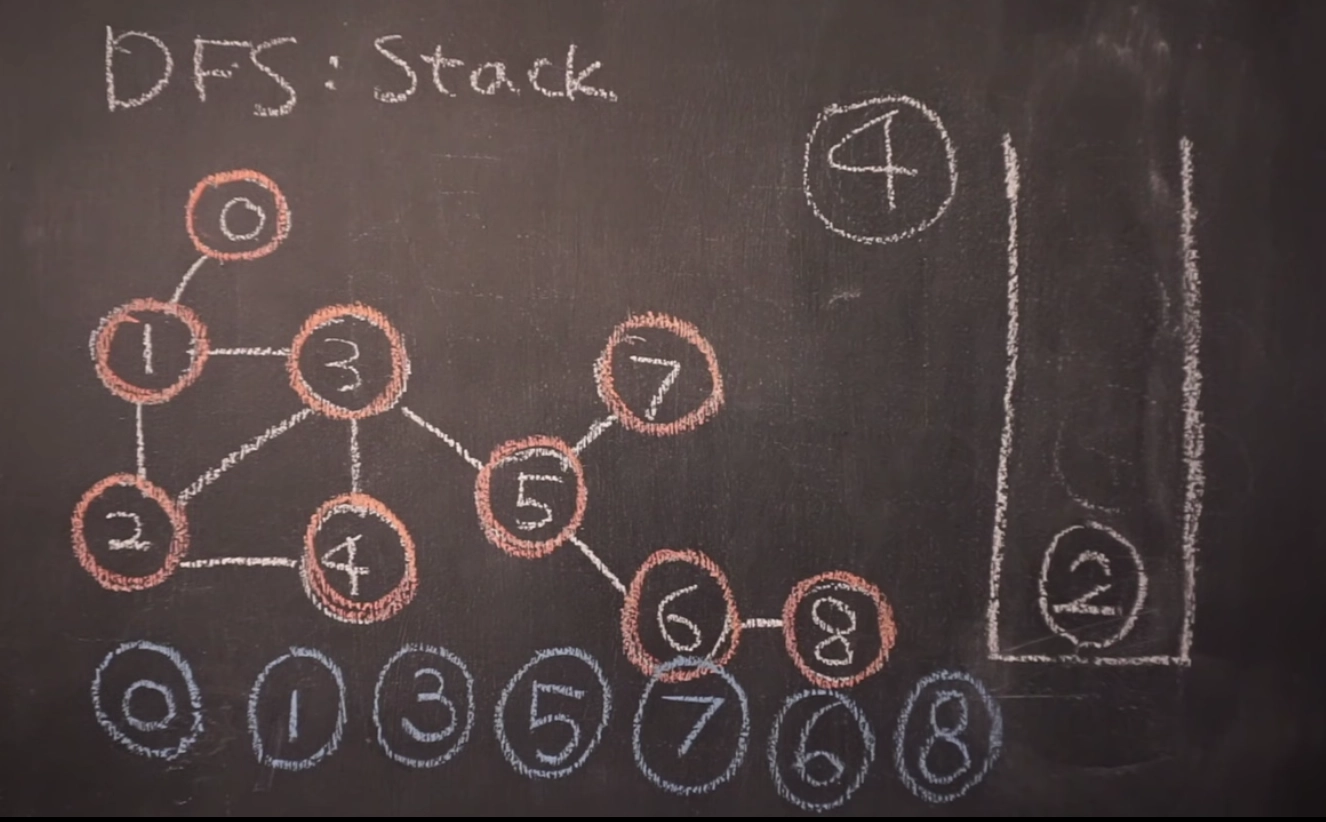 DFS: Stack
4
0
1 3 7
5
2 4
6 8
2
0 1 3 5 7 6 8